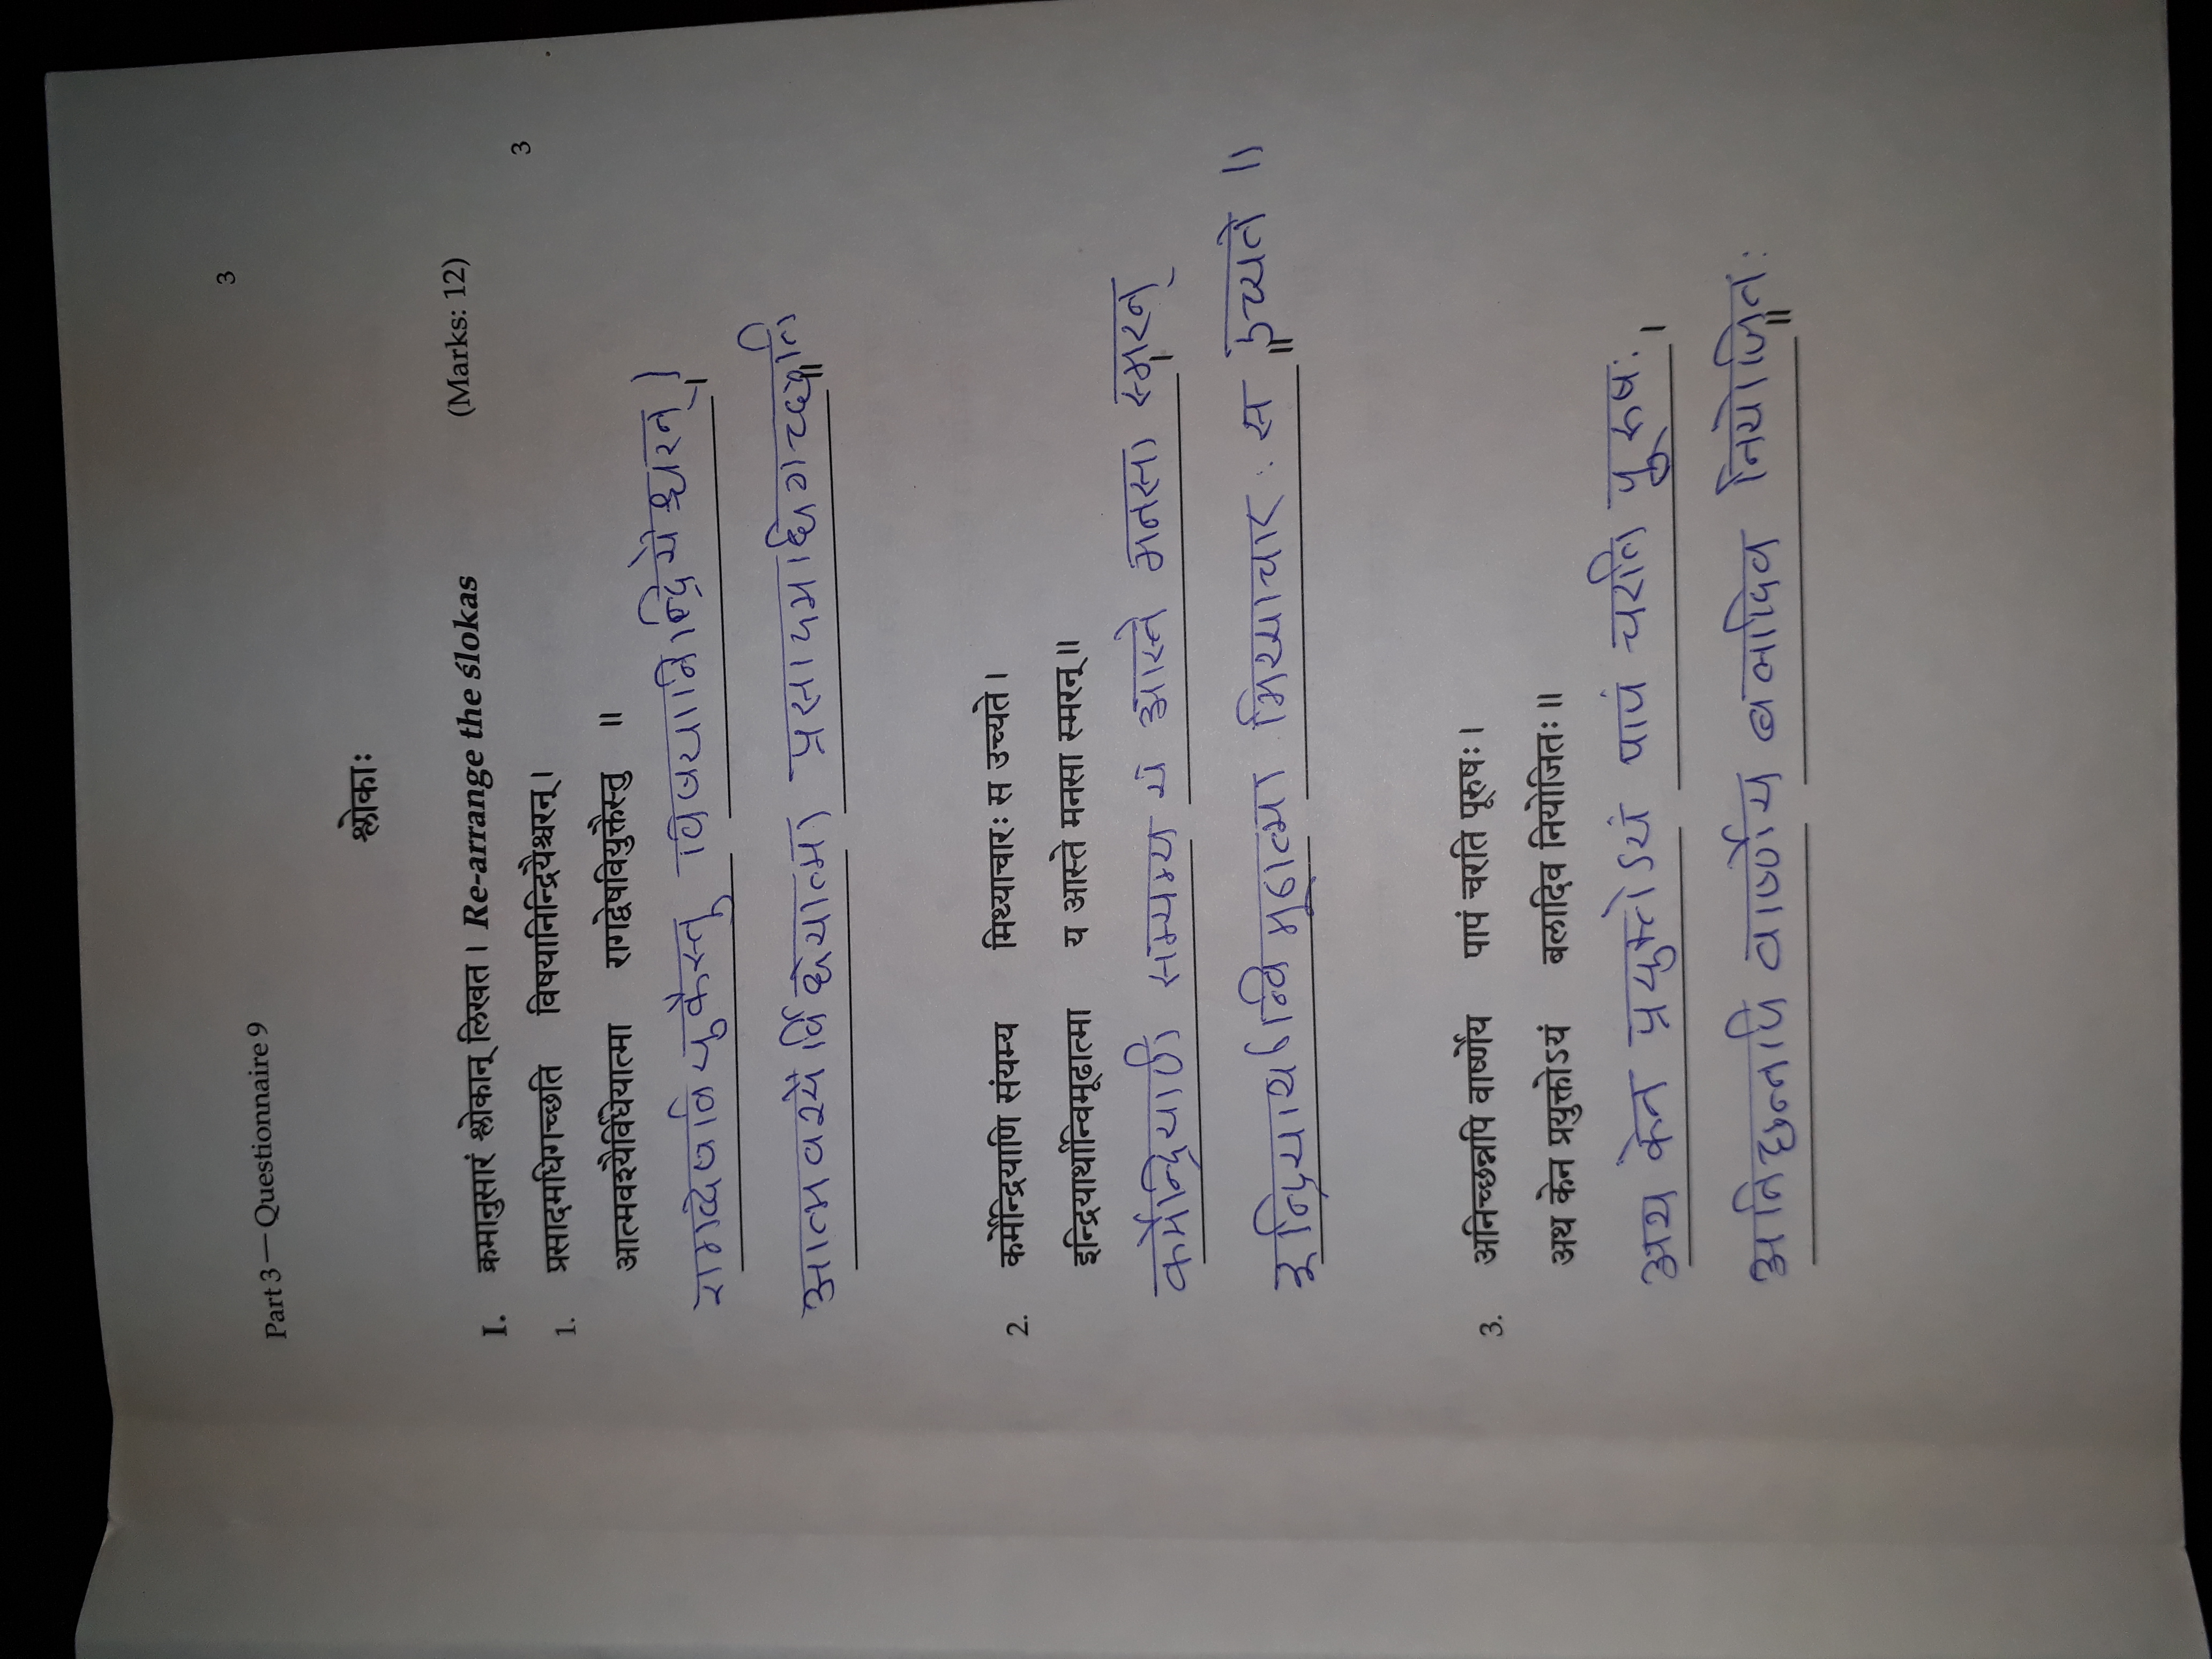 3
Part 3 — Questionnaire 9
श्लोकाः
I. क्रमानुसारं श्लोकान् लिखत । Re-arrange the ślokas (Marks: 12)
3
1. प्रसादमधिगच्छति विषयानिन्द्रियैश्चरन् ।
आत्मवश्यैर्विधेयात्मा रागद्वेषवियुक्तैस्तु ॥
रागद्वेषवियुकैस्तु विषयानिन्द्रियैश्चरन् ।
आत्मवश्यैर्विधेयात्मा प्रसादमधिगच्छति ॥
2. कर्मेन्द्रियाणि संयम्य मिथ्याचारः स उच्यते ।
इन्द्रियार्थान्विमूढात्मा य आस्ते मनसा स्मरन् ॥
कर्मेन्द्रियाणि सम्यम्य य आस्ते मनसा स्मरन् ।
इन्द्रियार्थान्विमूढात्मा मिथ्याचारः स उच्यते ॥
3. अनिच्छन्नपि वार्ष्णेय पापं चरति पूरुषः ।
अथ केन प्रयुक्तोऽयं बलादिव नियोजितः ॥
अथ केन प्रयुक्तोऽयं पापं चरति पूरुषः ।
अनिछन्नपि वार्ष्णेय बलादिव नियोजितः ॥